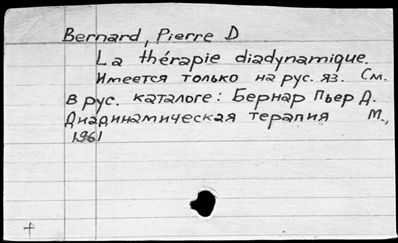 Bernard, Pierre D
La thérapie diadynamique.
Имеется только на рус. яз. См.
в рус. каталоге: Бернар Пьер Д.
Диадинамическая терапия М.,
1961